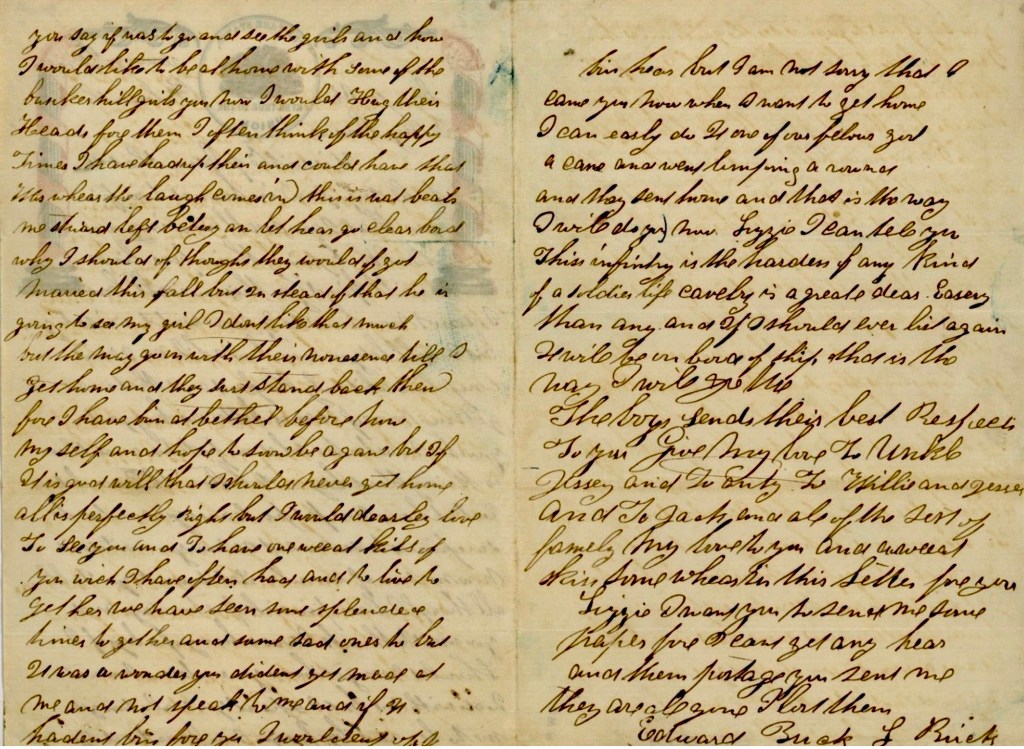 you say if was to go and see the girls and how
I would like to be at home with some of the
bunker hill girls you now I would Hug their
Heads fore them I often think of the happy
Times I have had up their and could have that
is wheas the laugh comes in) this is what beats
me stuard left betsy an let hear go clear bord
why I should of thought they would of got
maried this fall but in stead of that he is
going to see my girl I dont like that much
but the may go on with their nonesence till I
get home and they just stand back then
fore I have bin at bethel before now
my self and hope to soon be agane but If
It is gods will that I should never get home
all is perfectly right but I would dearley love
To See you and To have one sweeat kiss of
you wich I have often had and to live to
gether we have seen some splended
times to gether and some sad ones to but
It was a wonder you dident get mad at
me and not speak to me and if It
hadent bin fore you I wouldent of
bin hear but I am not sorry that I
came you now when I want to get home
I can easly do It one of our felows got
a cane and went limping a round
and thay sent home and that is the way
I will do yes) now Lizzie I can tele you
Thiss infintry is the hardess of any Kind
of a soldies life cavelry is a greate deas Easey
than any and If I should ever list again
It will be on bord of ship that is the
way I will
The boys sends their best Respects
To you Give My love To Unkle
Jessey and To Willie and Jesse
And To Jack and ale of the rest of
famely My love to you and a sweeat
kiss some wheas in this Letter fore you
Lizzie I want you to send me some
paper fore I cant get any hear
and them postage you sent me
they are ale gone I lost them
Edward Buck L Buck